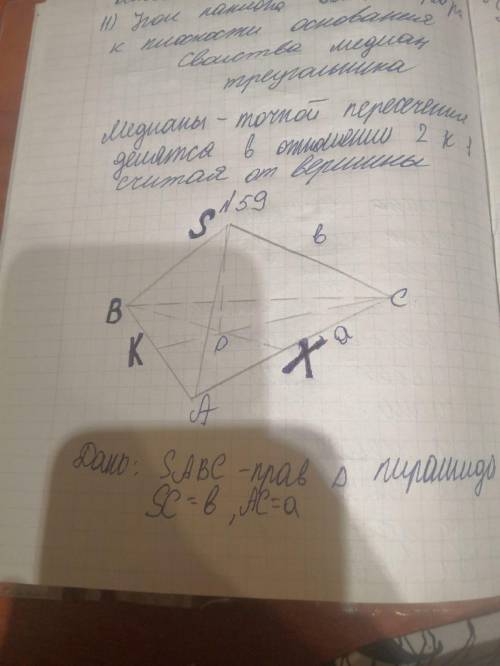 11) Угол наклона
к плоскости основания
Свойства медиан
треугольника
Медианы - точкой пересечения
делятся в отношении 2 к 1
считая от вершины
N59
S
в
B
C
K
O
X
a
A
Дано: SABC - прав Δ пирамида
SC = в, AC = a